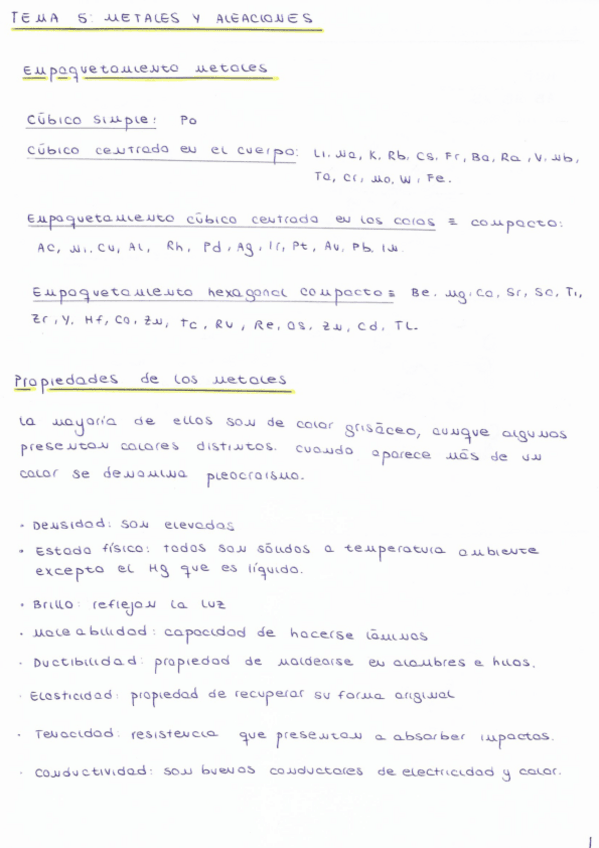 TEMA 5: METALES Y ALEACIONES
Empaquetamiento metales
Cúbico simple: Po
Cúbico centrado en el cuerpo: Li, Na, K, Rb, Cs, Fr, Ba, Ra, V, Nb,
Ta, Cr, Mo, W, Fe.
Empaquetamiento cúbico centrado en los caras ≡ compacto:
Ac, Ni, Cu, Al, Rh, Pd, Ag, Ir, Pt, Au, Pb, In.
Empaquetamiento hexagonal compacto ≡ Be, Mg, Ca, Sr, Sc, Ti,
Zr, Y, Hf, Co, Zn, Tc, Ru, Re, Os, Zn, Cd, TL.
Propiedades de los metales
La mayoría de ellos son de color grisáceo, aunque algunos
presentan colores distintos. Cuando aparece más de un
color se denomina pleocroísmo.
· Densidad: son elevadas
· Estado físico: todos son sólidos a temperatura ambiente
excepto el Hg que es líquido.
· Brillo: reflejan la luz
· Maleabilidad: capacidad de hacerse láminas
· Ductibilidad: propiedad de moldearse en alambres e hilos.
· Elasticidad: propiedad de recuperar su forma original
· Tenacidad: resistencia que presentan a absorber impactos.
· Conductividad: son buenos conductores de electricidad y calor.
1